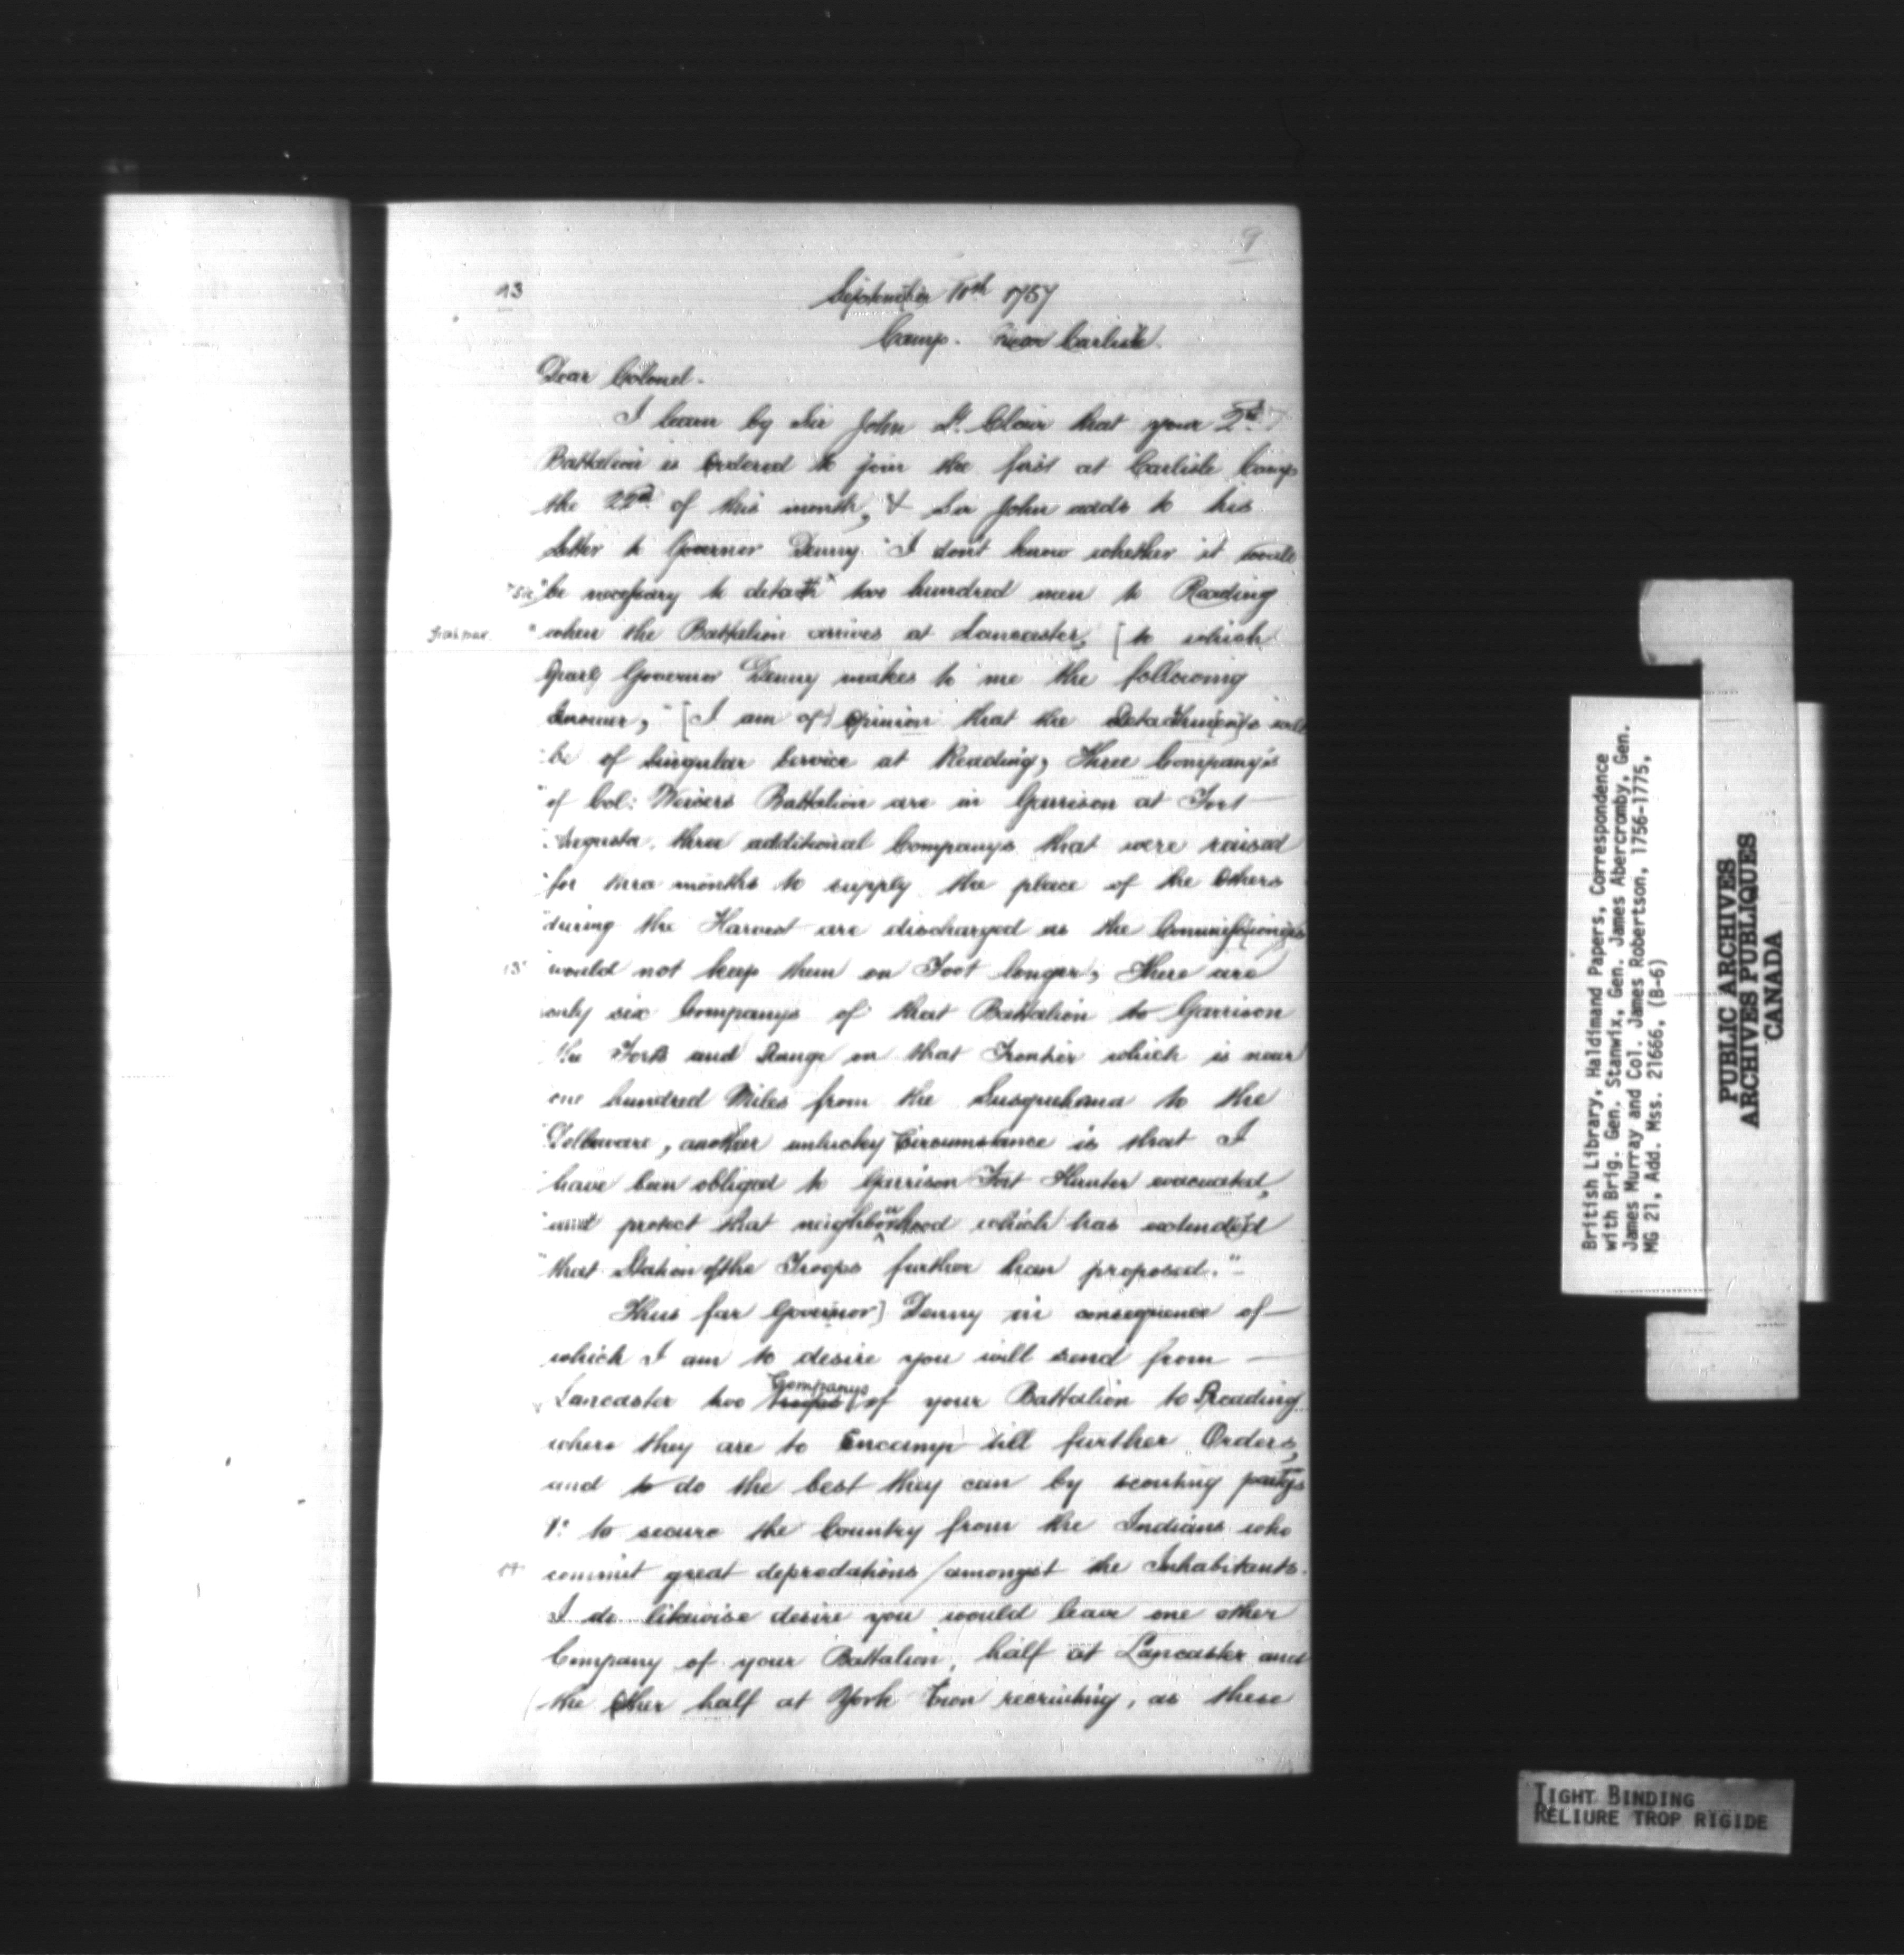 9
13
September 10th 1757
Camp. near Carlisle.
Dear Colonel.
I learn by Sir John St. Clair that your 2nd
Battalion is ordered to join the first at Carlisle Camp
the 22nd of this month, & Sir John adds to his
letter to Governor Denny "I don't know whether it would
"be necessary to detach two hundred men to Reading
"when the Battalion arrives at Lancaster, [to which
Governor Denny makes to me the following
Answer, "[I am of] Opinion that the Detachments will
"be of singular Service at Reading, Three Company's
"of Col: Weisers Battalion are in Garrison at Fort
"Augusta, three additional Companys that were raised
"for three months to supply the place of the Others
"during the Harvest are discharged as the Commissioners
"would not keep them on Foot longer, There are
only six Companys of that Battalion to Garrison
"the Forts and Range on that Frontier which is near
one hundred Miles from the Susquehana to the
"Dellaware, another unlucky Circumstance is that I
"have been obliged to Garrison Fort Hunter evacuated,
"and protect that neighbourhood which has extended
"that Station of the Troops further than proposed."
Thus far Governor] Denny in consequence of
which I am to desire you will send from
Lancaster two Troops Companys of your Battalion to Reading
where they are to Encamp till further Orders,
and to do the best they can by scouting partys
to secure the Country from the Indians who
14
commit great depredations / amongst the Inhabitants.
I do likewise desire you would leave one other
Company of your Battalion, half at Lancaster and
the Other half at York Town recruiting, as these
British Library, Haldimand Papers, Correspondence
with Brig. Gen. Stanwix, Gen. James Abercromby, Gen.
James Murray and Col. James Robertson, 1756-1775,
MG 21, Add. Mss. 21666, (B-6)
PUBLIC ARCHIVES
ARCHIVES PUBLIQUES
CANADA
TIGHT BINDING
RELIURE TROP RIGIDE